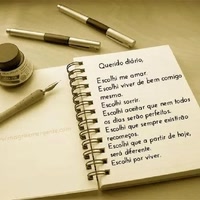 Querido diário,
Escolhi me amar.
Escolhi viver de bem comigo
mesma.
Escolhi sorrir.
Escolhi aceitar que nem todos
os dias serão perfeitos.
Escolhi que sempre existirão
recomeços.
Escolhi que a partir de hoje,
será diferente.
Escolhi por viver.